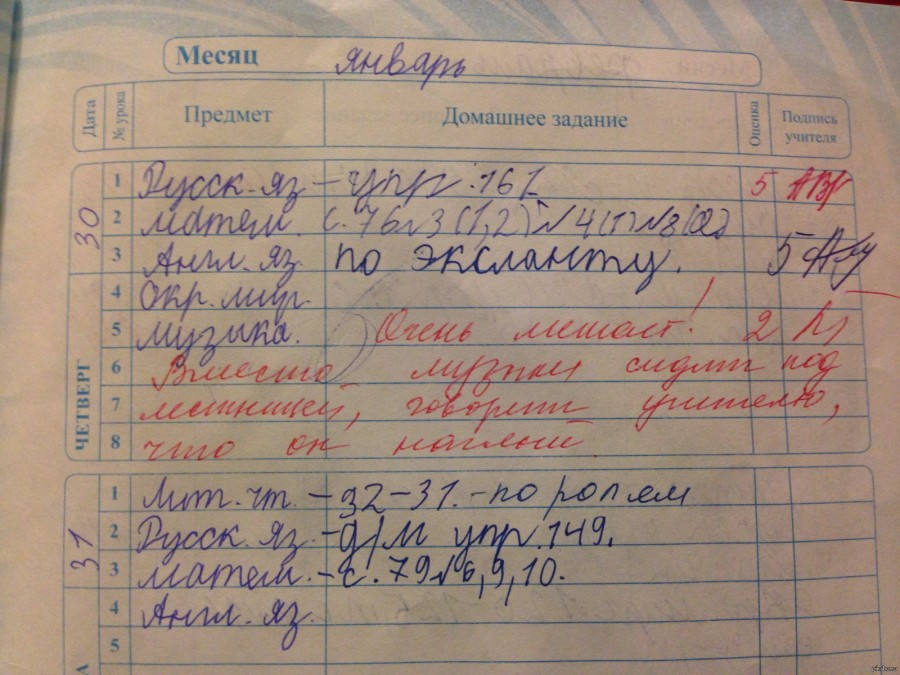 Месяц январь
Дата № урока Предмет Домашнее задание Оценка Подпись учителя
30 ЧЕТВЕРГ
1 Русск. яз – упр. 161 5
2 матем. с. 76 №3 (1,2) №4(1) №8(02)
3 Англ. яз. по эксланту. 5
4 Окр. мир.
5 музыка. Очень мешает! 2
6 Вместо музыки сидит под
7 лестницей, говорит учителю,
8 что он наглый
31
1 Лит. чт. – 32–31. – по ролям
2 Русск. яз. – д/м упр. 149.
3 матем. – с. 79 №6, 9, 10.
4 Англ. яз.
5